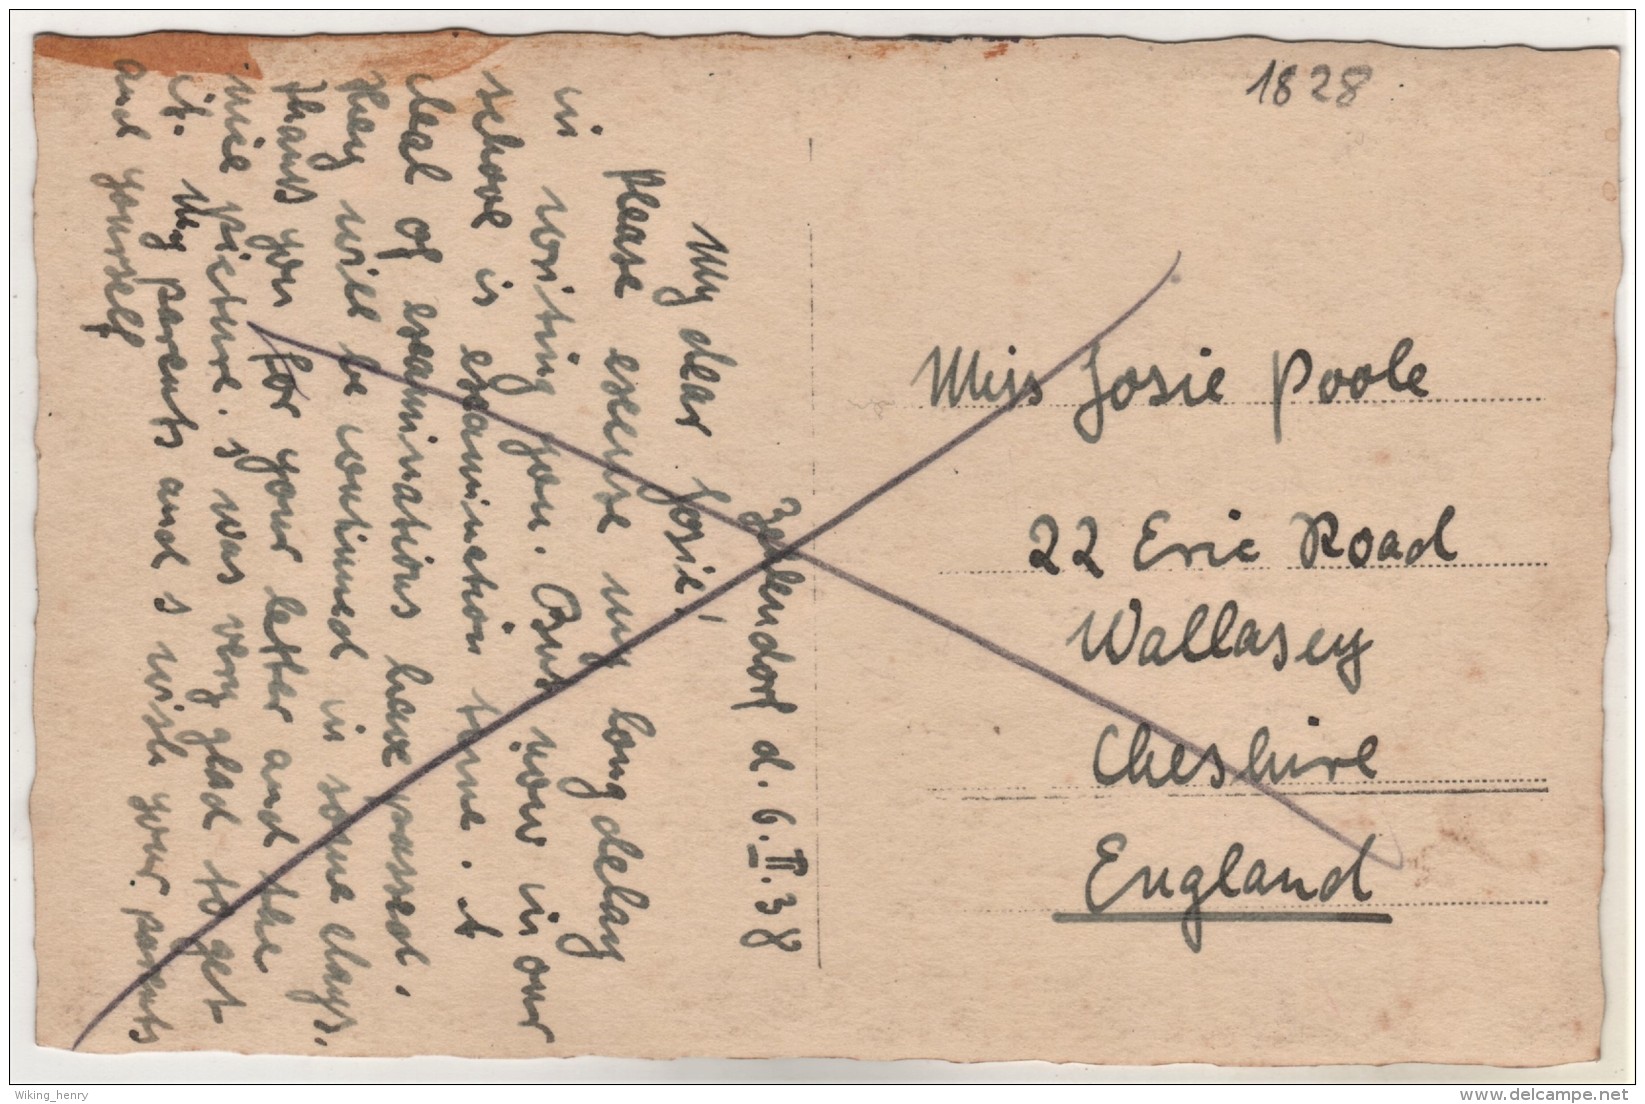 Zehlendorf d. 6.II.38
My dear Josie!
Please excuse my long delay
in writing you. But now in our
school is examination time. A
deal of examinations have passed.
They will be continued in some days.
Thanks you for your letter and the
nice picture. I was very glad to get
it. My parents and I wish your parents
and yourself
1828
Miss Josie Poole
22 Eric Road
Wallasey
Cheshire
England
Wiking_henry
delcampe.net